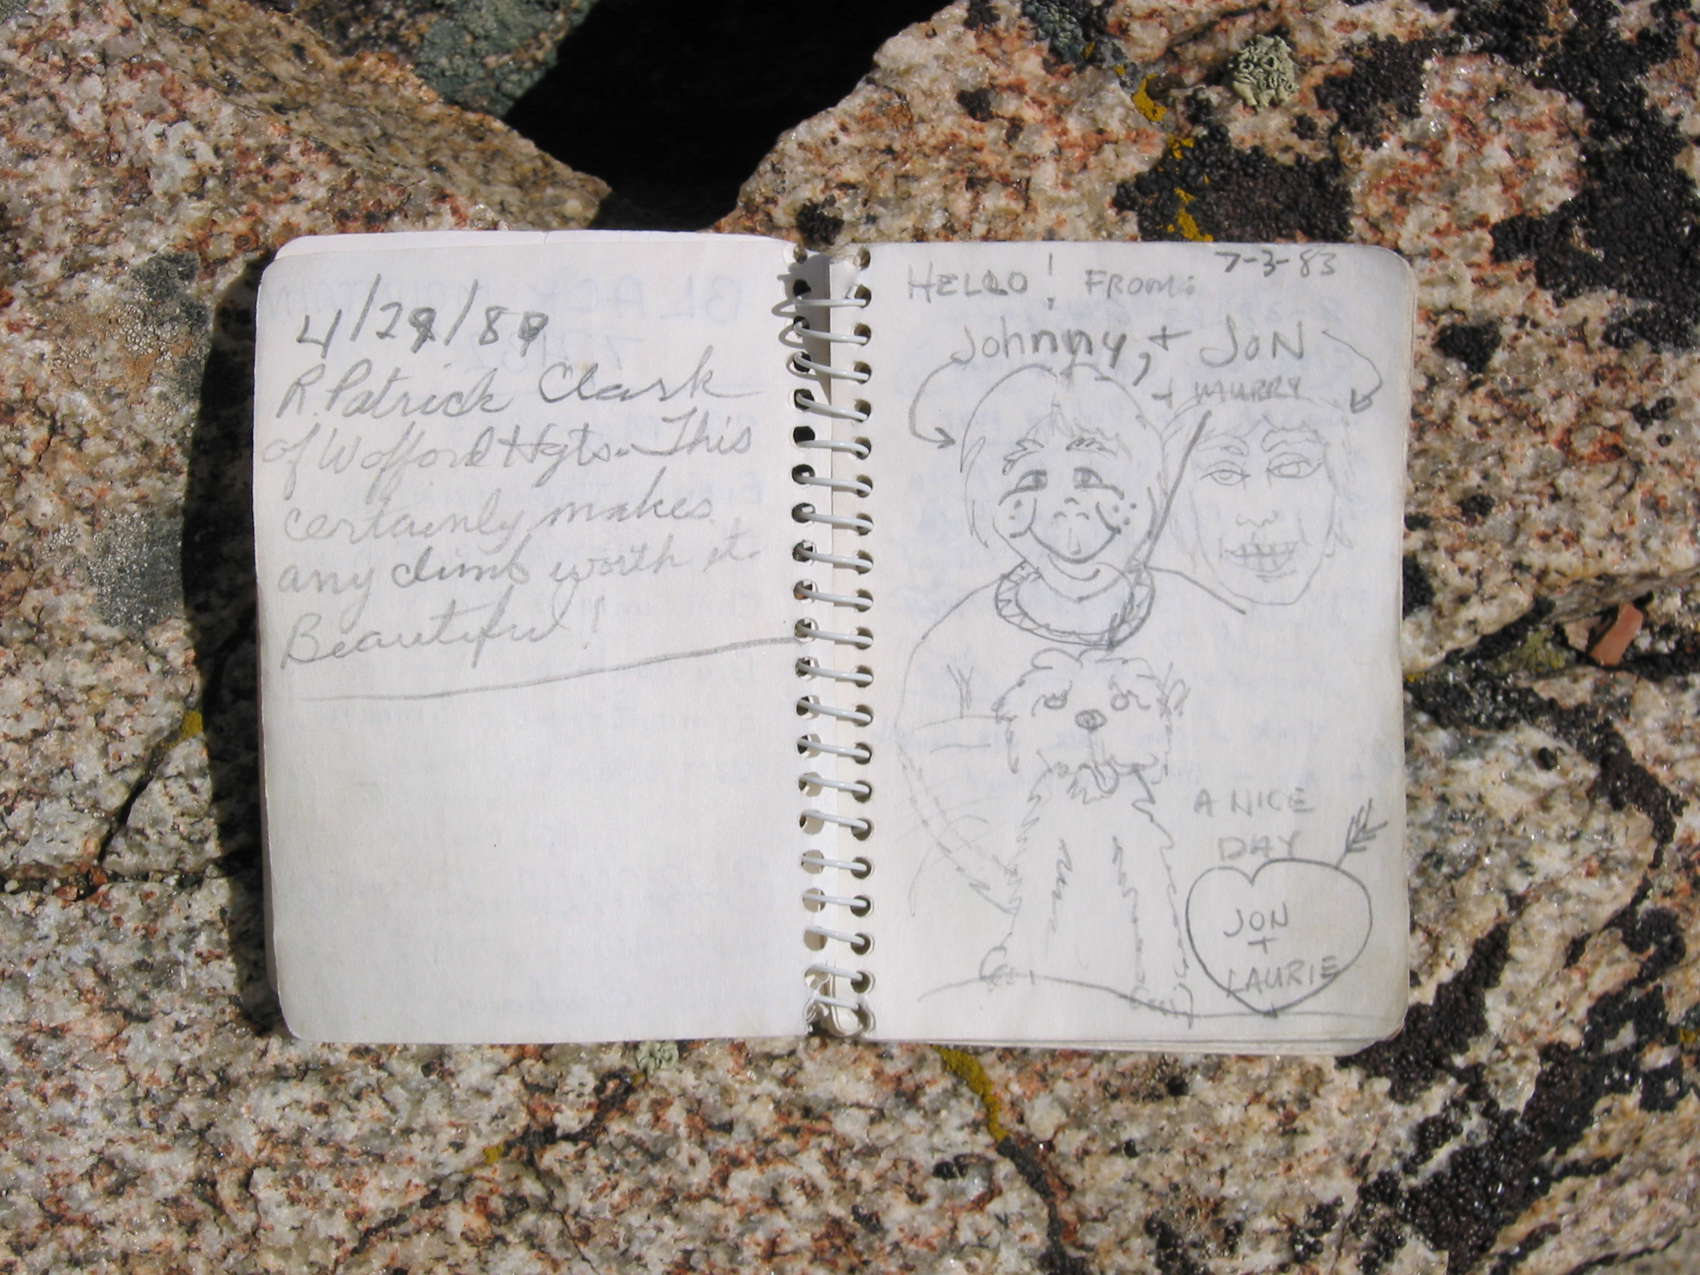 4/29/89
R. Patrick Clark
of Wofford Hgts. This
certainly makes
any climb worth it.
Beautiful!
7-3-83
HELLO! FROM:
Johnny, + JON
+ MURRY
A NICE
DAY
JON
+
LAURIE